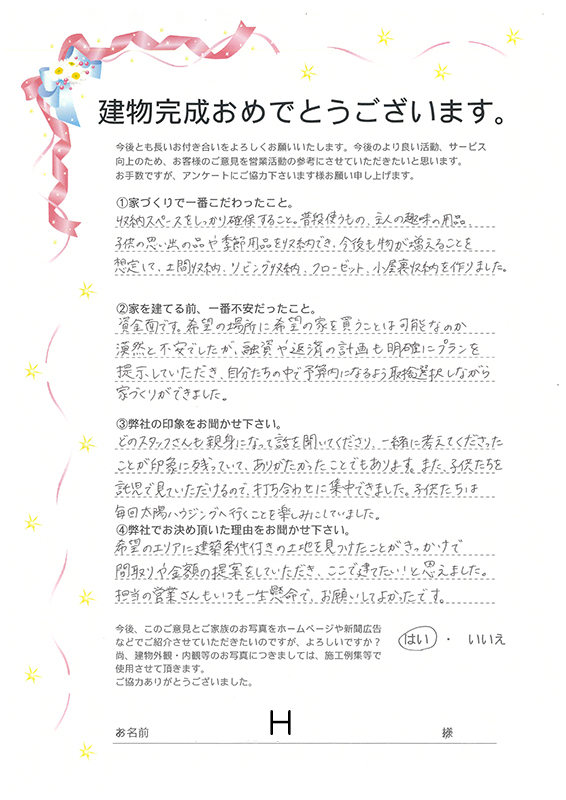 建物完成おめでとうございます。
今後とも長いお付き合いをよろしくお願いいたします。今後のより良い活動、サービス
向上のため、お客様のご意見を営業活動の参考にさせていただきたいと思います。
お手数ですが、アンケートにご協力下さいます様お願い申し上げます。
①家づくりで一番こだわったこと。
収納スペースをしっかり確保すること。普段使うもの、主人の趣味の用品、
子供の思い出の品や季節用品を収納でき、今後も物が増えることを
想定して、土間収納、リビング収納、クローゼット、小屋裏収納を作りました。
②家を建てる前、一番不安だったこと。
資金面です。希望の場所に希望の家を買うことは可能なのか
漠然と不安でしたが、融資や返済の計画も明確にプランを
提示していただき、自分たちの中で予算内になるよう取捨選択しながら
家づくりができました。
③弊社の印象をお聞かせ下さい。
どのスタッフさんも親身になって話を聞いてくださり、一緒に考えてくださった
ことが印象に残っていて、ありがたかったことでもあります。また、子供たちを
託児で見ていただけるので、打ち合わせに集中できました。子供たちは
毎回太陽ハウジングへ行くことを楽しみにしていました。
④弊社でお決め頂いた理由をお聞かせ下さい。
希望のエリアに建築条件付きの土地を見つけたことがきっかけで
間取りや金額の提案をしていただき、ここで建てたい!と思えました。
担当の営業さんもいつも一生懸命で、お願いしてよかったです。
今後、このご意見とご家族のお写真をホームページや新聞広告
などでご紹介させていただきたいのですが、よろしいですか?
尚、建物外観・内観等のお写真につきましては、施工例集等で
使用させて頂きます。
ご協力ありがとうございました。
はい ・ いいえ
お名前 H 様